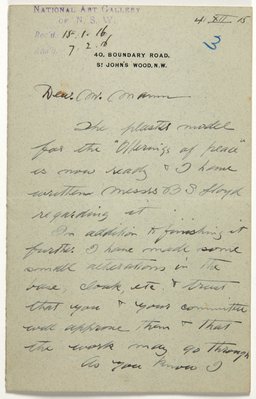 NATIONAL ART GALLERY
OF N. S. W.
Recd. 18.1.16
7.2.16
4 XII 15
3
40, BOUNDARY ROAD,
ST JOHN'S WOOD, N.W.
Dear Mr Mann
The plaster model
for the "Offerings of peace"
is now ready & I have
written Messrs B S Lloyd
regarding it
In addition to finishing it
further I have made some
small alterations in the
base, cloak etc. & trust
that you & your committee
will approve them & that
the work may go through
As you know I